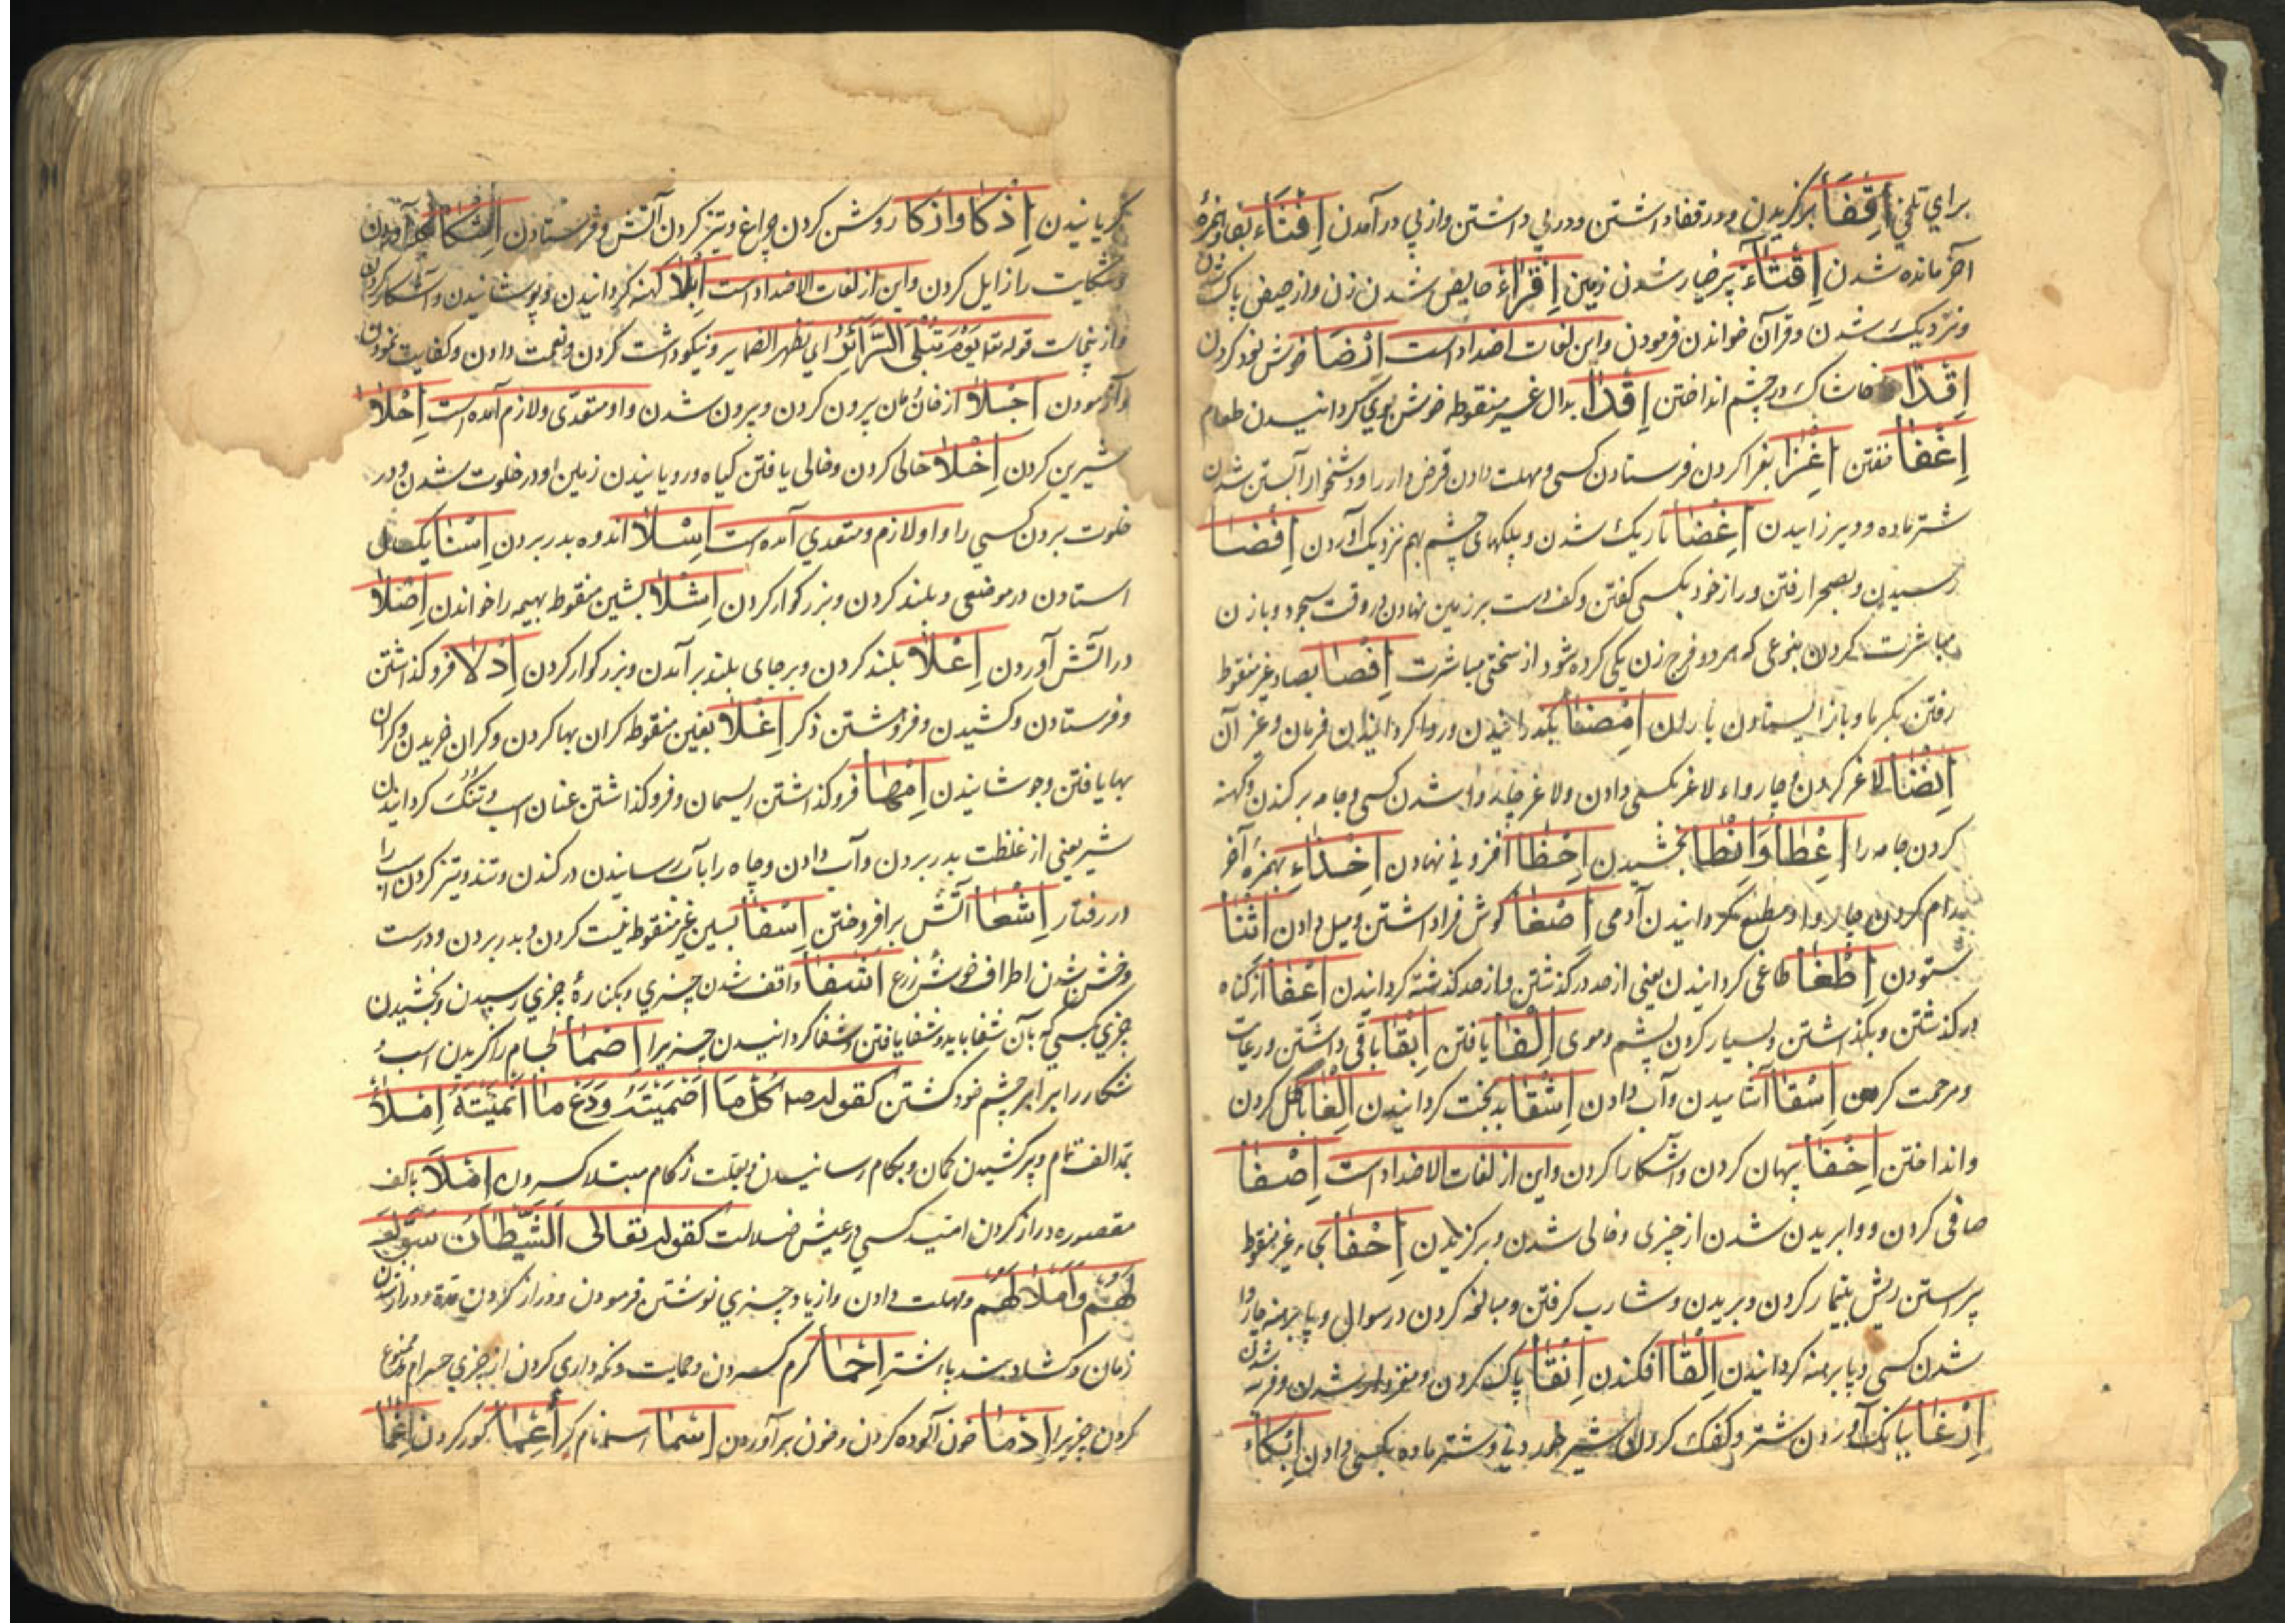 براي تلخي اِقْفَا برگزيدن و در قفا داشتن و در پي داشتن و از پي در آمدن اِقْتَاء بقاف و همزهٔ
آخر مانده شدن اِقْثَاء پر خيار شدن زمين اِقْرَاء حايض شدن زن و از حيض پاک شدن
و نزديک شدن و قرآن خواندن فرمودن و اين لغات اضداد است اِرْضَا خوش نود کردن
اِقْذَا خاشاک در چشم انداختن اِقْدَا بدال غير منقوطه خوش بوي گردانيدن طعام
اِغْفَا خفتن اِغْزَا بغزا کردن فرستادن کسي و مهلت دادن قرض دار را و دشخوار آبستن شدن
شتر ماده و دير زاييدن اِغْضَا تاريک شدن و پلکهای چشم بهم نزديک آوردن اِفْضَا
رسيدن و بصحرا رفتن و راز خود بکسي گفتن و کف دست بر زمين نهادن در وقت سجود و با زن
مباشرت کردن بنوعی که هر دو فرج زن يکی کرده شود از سختی مباشرت اِفْصَا بصاد غير منقوط
رفتن گرما و باز ايستادن باران اِمْضَا بگذرانيدن و روا گردانيدن فرمان و غير آن
اِنْضَا لاغر کردن چاروا و لاغر بکسی دادن و لاغر چاروا شدن کسی و جامه بر کندن و کهنه
کردن جامه را اِعْطَا وَانْطَا بخشيدن اِحْظَا افزونی نهادن اِخْذَاءِ بهمزهٔ آخر
بدام کردن چاروا و مطيع گردانيدن آدمی اِصْغَا گوش فرا داشتن و ميل دادن اِثْنَا
ستودن اِطْغَا طاغی گردانيدن يعنی از حد در گذشتن و از حد گذشته گردانيدن اِعْفَا از گناه
در گذشتن و بگذاشتن و بسيار کردن پشم و موی اِلْفَا يافتن اِبْقَا باقی داشتن و رعايت
و مرحمت کردن اِسْقَا آشاميدن و آب دادن اِشْقَا بدبخت گردانيدن اِلْغَا باطل کردن
و انداختن اِخْفَا پنهان کردن و آشکارا کردن و اين از لغات الاضداد است اِصْفَا
صافی کردن و وا بريدن شدن از چيزی و خالی شدن و برگزيدن اِحْفَا بحاء غير منقوط
پراستن ريش بتيمار کردن و بريدن و شارب گرفتن و مبالغه کردن در سوال و پا برهنه چاروا
شدن کسی و پا برهنه گردانيدن اِلْقَا افکندن اِنْقَا پاک کردن و مغزدار شدن و فربه شدن
اِرْغَا ببانگ آوردن شتر و کفک کردن شير و شتر ماده بکسی دادن اِبْکَاء
گريانيدن اِذْکَا و اذکا روشن کردن چراغ و تيز کردن آتش و فرستادن اِشْکَا آوردن
و شکايت را زايل کردن و اين از لغات الاضداد است اِبْلَا کهنه گردانيدن و پوشانيدن و آشکار کردن
و از ينجاست قوله تعا يَوْمَ تُبْلَی السَّرَآئِرُ ای يظهر الضماير و نيکو داشت کردن و نعمت دادن و کفايت نمودن
و آزمودن اِجْلَا از خانمان بيرون کردن و بيرون شدن و او متعدی و لازم آمده است اِحْلَا
شيرين کردن اِخْلَا خالی کردن و خالی يافتن گياه و رويانيدن زمين او در خلوت شدن و در
خلوت بردن کسی را و او لازم و متعدي آمده است اِسْلَا اندوه بدر بردن اِسْنَا يکسال
استادن در موضعی و بلند کردن و بزرگوار کردن اِشْلَا بشين منقوط بهيمه را خواندن اِصْلَا
در آتش آوردن اِعْلَا بلند کردن و بر جای بلند بر آمدن و بزرگوار کردن اِدْلَا فرو گذاشتن
و فرستادن و کشيدن و فروهشتن ذکر اِغْلَا بغين منقوطه گران بها کردن و گران خريدن و گران
بها يافتن و جوشانيدن اِمْهَا فرو گذاشتن ريسمان و فرو گذاشتن عنان اسب و تنک گردانيدن
شير يعنی از غلظت بدر بردن و آب دادن و چاه را بآب رسانيدن در کندن و تند و تيز کردن اسب را
در رفتار اِشْعَا آتش بر افروختن اِسْفَا بسين غير منقوطه نيست کردن و بدر بردن و درست
و خشن شدن اطراف خوشهٔ زرع اشفَا واقف شدن چيزي و بکنارهٔ چيزي رسيدن و بخشيدن
چيزي بکسي که بآن شفا يابد و شفا يافتن و شفا گردانيدن چيزيرا اِصْمَا لجام را گزيدن اسپ و
شکار را برابر چشم خود کشتن کقوله صه کُلْ مَا اَصْمَيْتَهُ وَدَعْ مَا اَنْمَيْتَهُ اِمْلَاْ
بمد الف تمام و پر کشيدن کمان و بکام رسانيدن و بعلت زکام مبتلا کردن اِمْلَا بالف
مقصوره دراز کردن اميد کسي در عيش ضلالت کقوله تعالی الشَّيْطَانُ سَوَّلَ
لَهُمْ وَاَمْلَا لَهُمْ و مهلت دادن و از ياد چيزي نوشتن فرمودن و دراز کردن مدة و دراز شدن
زمان و گشاد بند با اشتر اِحْمَا گرم کردن و حمايت و نگه داری کردن از چيزي حرام ممنوع
کردن چيزيرا اِدْمَا خون آلوده کردن و خون بر آوردن اِسْمَا اسم نام کر اَعْمَا کور کردن اِغْمَا